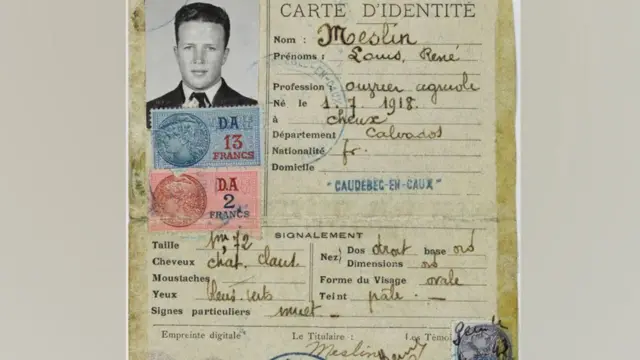 CARTE D'IDENTITÉ
Nom : Meslin
Prénoms : Louis, René
Profession : ouvrier agricole
Né le 1.7.1918.
à Cheux
Département Calvados
Nationalité fr.
Domicile
"CAUDEBEC-EN-CAUX"
DA
13
FRANCS
DA
2
FRANCS
SIGNALEMENT
Taille 1m,72
Cheveux chât. clairs
Moustaches
Yeux bleus verts
Signes particuliers muet -
Nez Dos droit base ord
Dimensions ord
Forme du Visage ovale
Teint pâle -
Empreinte digitale
Le Titulaire :
Les Témoi
Meslin